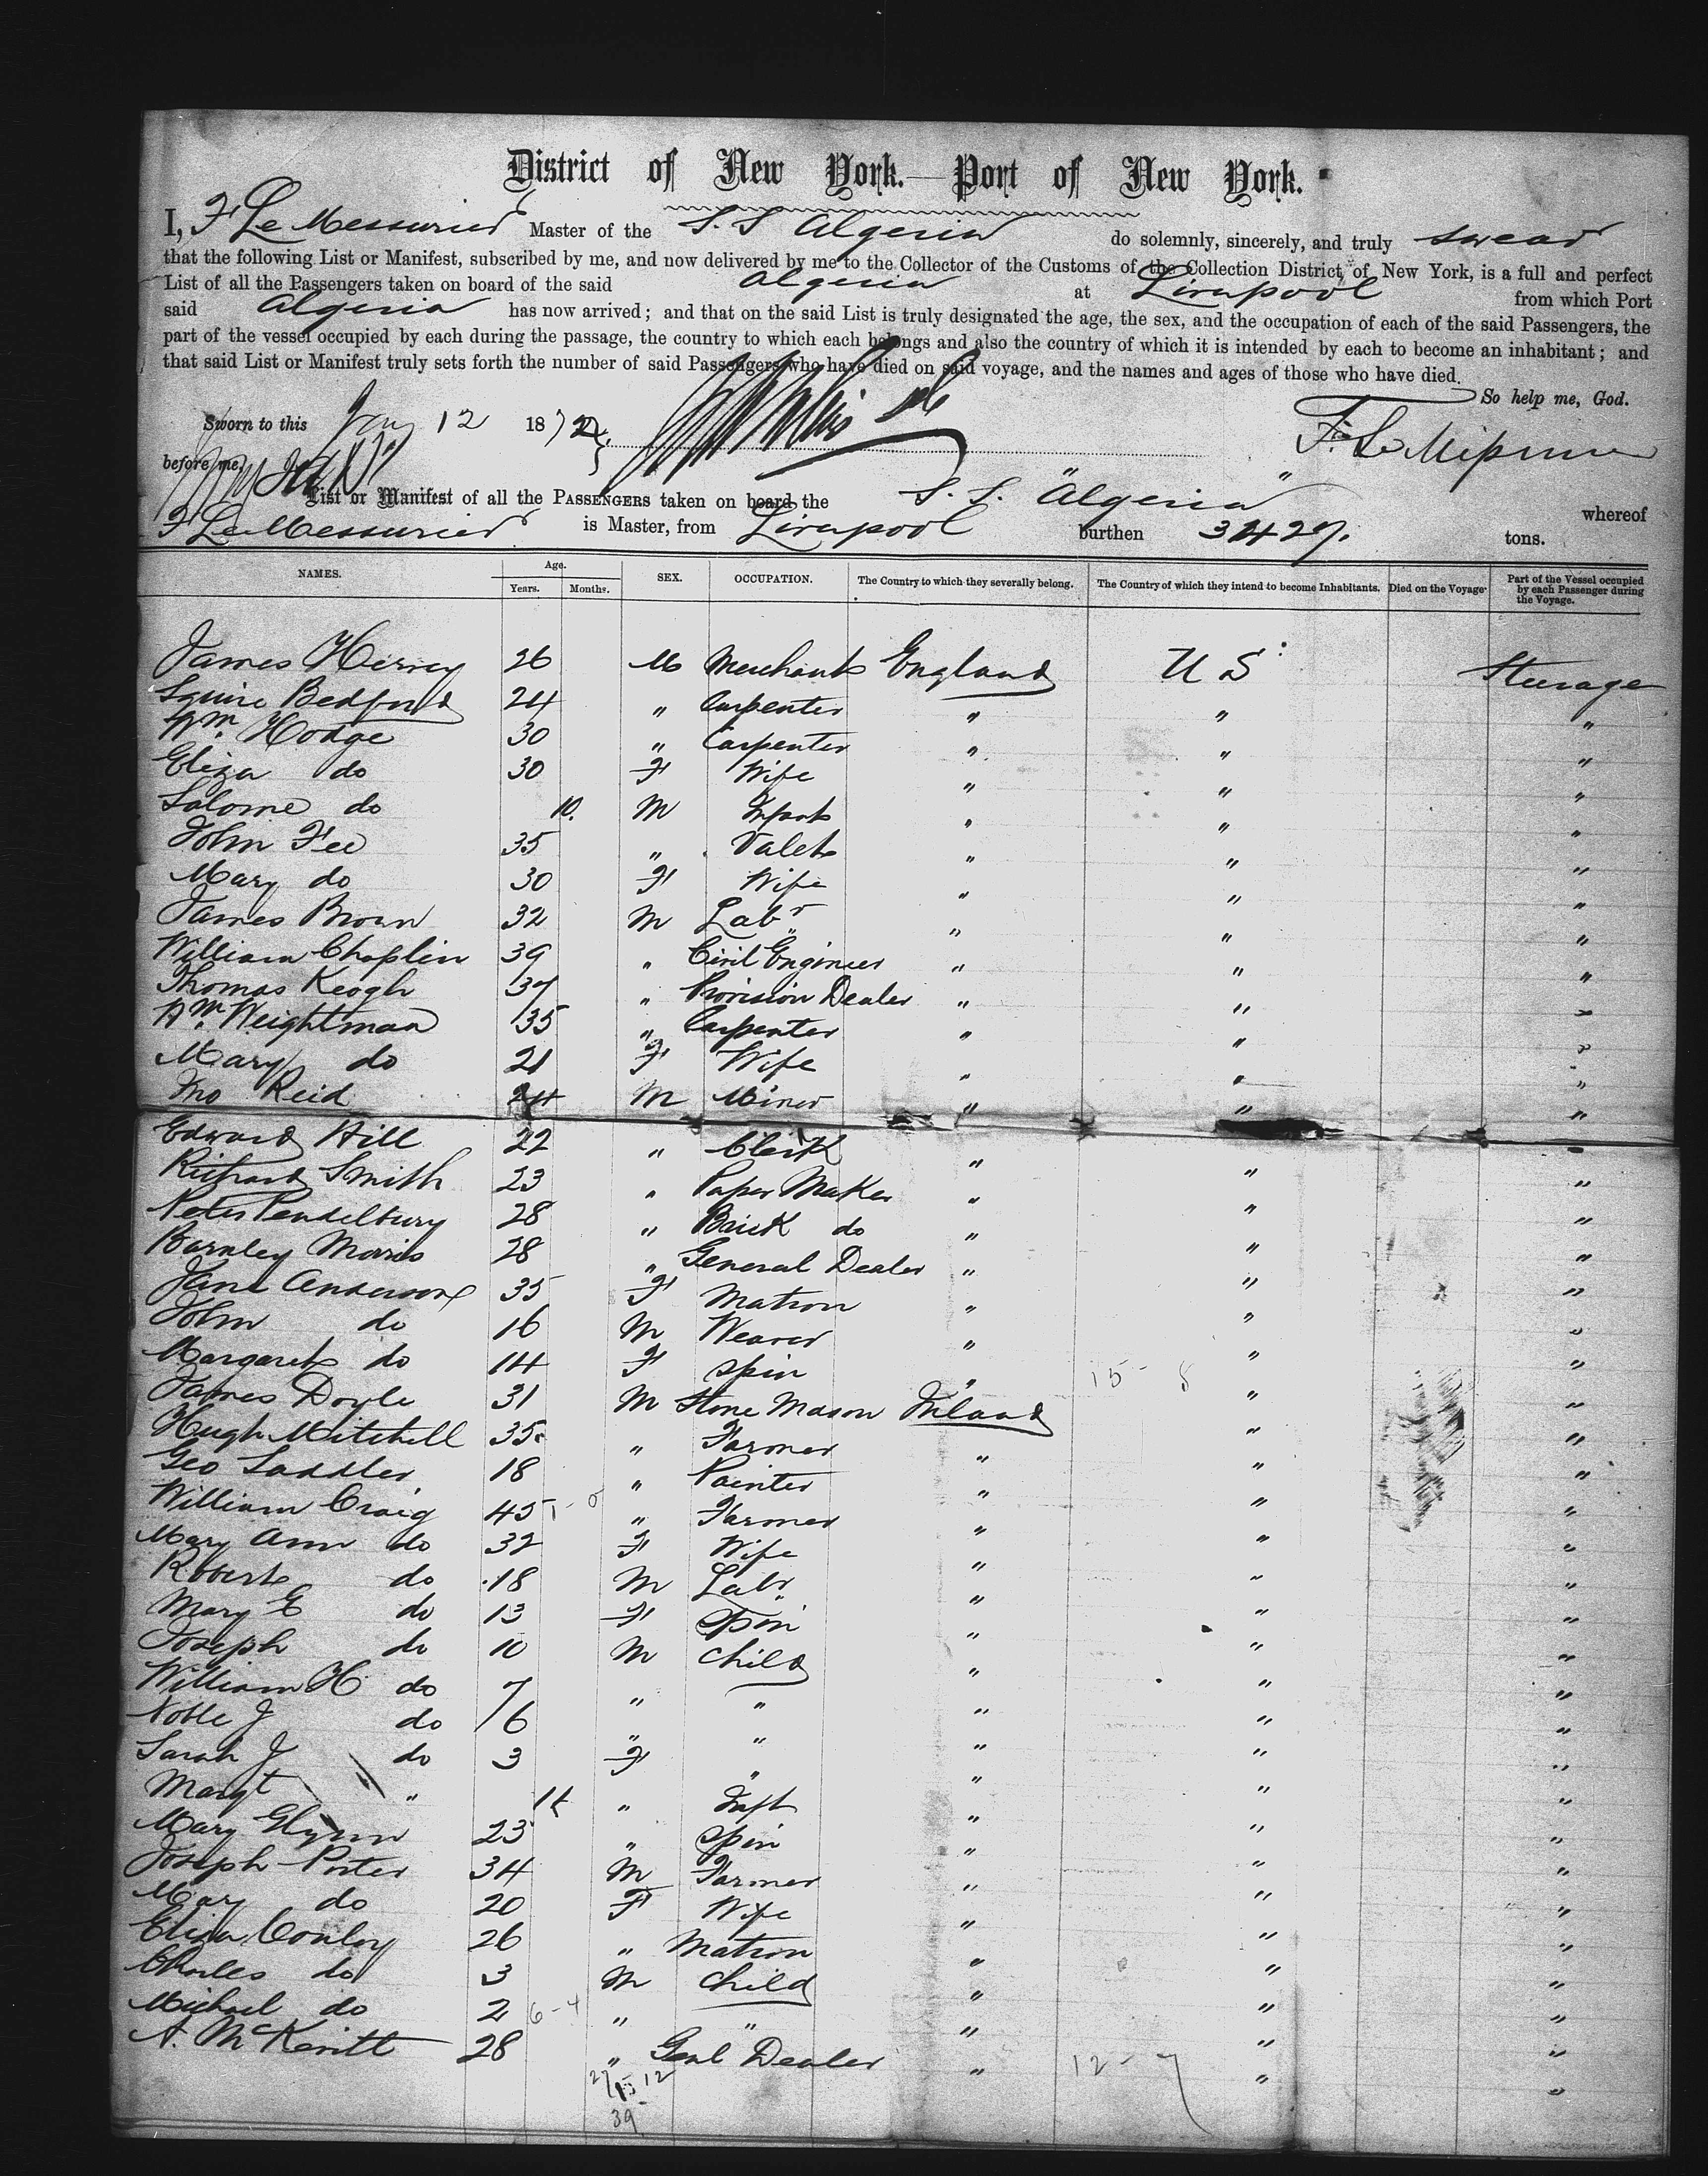 District of New York.—Port of New York.
I, F Le Messurier Master of the S. S Algeria do solemnly, sincerely, and truly swear
that the following List or Manifest, subscribed by me, and now delivered by me to the Collector of the Customs of the Collection District of New York, is a full and perfect
List of all the Passengers taken on board of the said Algeria at Liverpool from which Port
said Algeria has now arrived; and that on the said List is truly designated the age, the sex, and the occupation of each of the said Passengers, the
part of the vessel occupied by each during the passage, the country to which each belongs and also the country of which it is intended by each to become an inhabitant; and
that said List or Manifest truly sets forth the number of said Passengers who have died on said voyage, and the names and ages of those who have died.
So help me, God.
Sworn to this Jany 12 1872
before me,
List or Manifest of all the PASSENGERS taken on board the S. S. Algeria whereof
F Le Messurier is Master, from Liverpool burthen 3429. tons.
NAMES. Age. Years. Months. SEX. OCCUPATION. The Country to which they severally belong. The Country of which they intend to become Inhabitants. Died on the Voyage Part of the Vessel occupied by each Passenger during the Voyage.
James Hervey 26 M Merchant England U S Steerage
Squire Bedford 24 " Carpenter " " "
Wm. Hodge 30 " Carpenter " " "
Eliza do 30 F Wife " " "
Salome do 10. M Infant " " "
John Fee 35 " Valet " " "
Mary do 30 F Wife " " "
James Brown 32 M Labr " " "
William Chaplin 39 " Civil Engineer " " "
Thomas Keogh 37 " Provision Dealer " " "
Wm. Weightman 35 " Carpenter " " "
Mary do 21 F Wife " " "
Jno Reid 24 M Miner " " "
Edward Hill 22 " Clerk " " "
Richard Smith 23 " Paper Maker " " "
Peter Pendelbury 28 " Brick do " " "
Barnley Morris 28 " General Dealer " " "
Jane Anderson 35 F Matron " " "
John do 16 M Weaver " " "
Margaret do 14 F Spin " 15 - 8 " "
James Doyle 31 M Stone Mason Ireland " "
Hugh Mitchell 35 " Farmer " " "
Geo Saddler 18 " Painter " " "
William Craig 45 " Farmer " " "
Mary Ann do 32 F Wife " " "
Robert do 18 M Labr " " "
Mary E do 13 F Spin " " "
Joseph do 10 M Child " " "
William H do 7 " " " " "
Noble J do 6 " " " " "
Sarah J do 3 F " " " "
Margt " 11 " Inft " " "
Mary Glynn 23 " Spin " " "
Joseph Porter 34 M Farmer " " "
Mary do 20 F Wife " " "
Eliza Conley 26 " Matron " " "
Charles do 3 M Child " " "
Michael do 2 6-4 " " " " "
A. McKevitt 28 " Genl Dealer " 12 - 7 " "
27 15 12
39